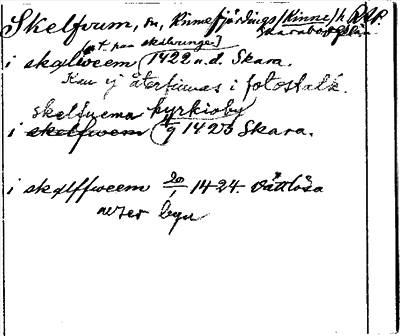 Skelfvum, sn, Kinnefjärdings/Kinne/h RAP.
Skaraborgs län
[pt. paa skelwnge]
i skælweem 1422 u.d. Skara.
Kan ej återfinnas i fotostatk.
skelfuema kyrkioby
i skelfwem 1/9 1423 Skara.
i skælffweem 20/1 1424. Vättlösa
avser byn